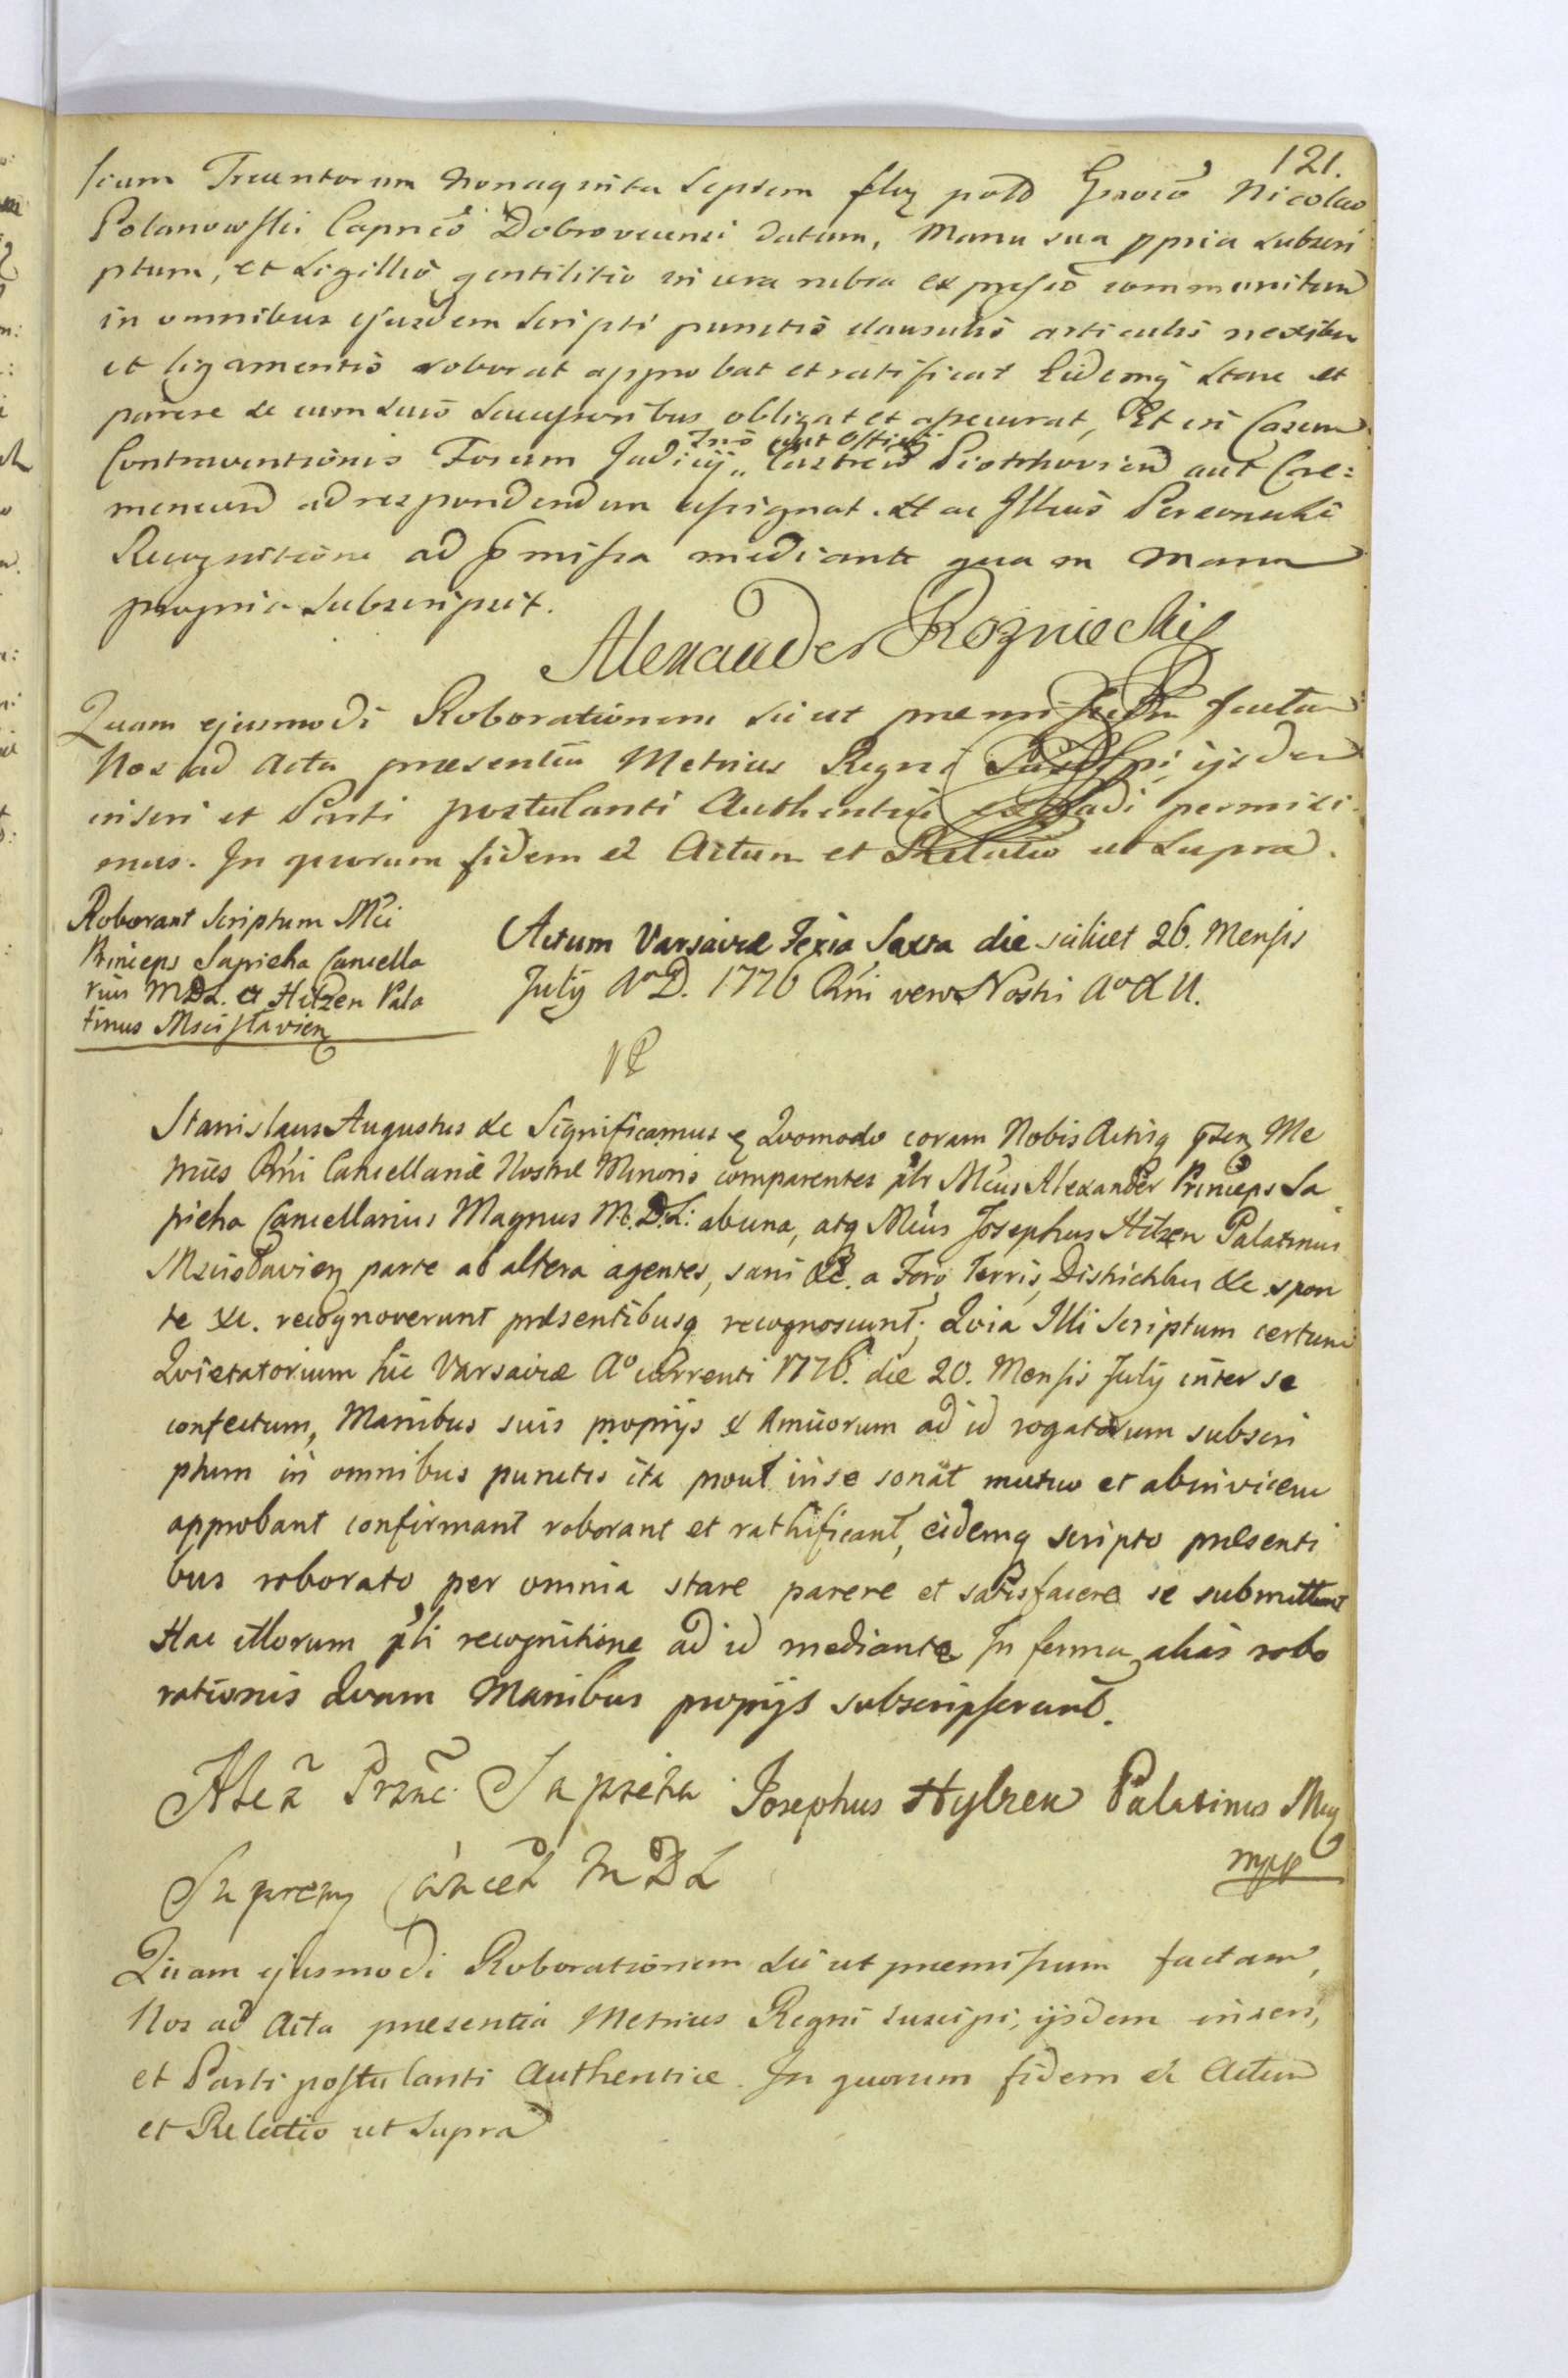 121.
scum Trecentorum nonaginta Septem flor polo Groso Nicolao
Polanowski Capneo Dobroviensi datum, manu sua ppria subscri
ptum, et Sigillis gentilitio in cera rubra expresso communitum
in omnibus ejusdem Scripti punctis clausulis articulis nexibus
et ligamentis roborat approbat et ratificat Eidemq stare et
parere se cum suis Successoribus obligat et assecurat, Et in Casum
Contraventionis Forum Judicij Castren Piotrkovien aut Cre=
menecen ad respondendum assignat. Hac Illius Personali
Recognitione ad pmissa mediante quam manu
propria subscripsit.
Alexander Rozniecki
Quam ejusmodi Roborationem sic ut praemissum factam
Nos ad Acta praesentia Metrices Regni Suscipi, ijsdem
inseri et Parti postulanti Authentice extradi permisi
mus. In quorum fidem et Actum et Relatio ut Supra.
Roborant Scriptum Mci
Princeps Sapieha Cancella
rius MDL. et Hilzen Pala
tinus Mscislavien
Actum Varsaviæ Feria Sexta die scilicet 26. Mensis
July Ao D. 1776 Rni vero Nostri Ao XII.
Stanislaus Augustus &c Significamus &c Quomodo coram Nobis Actisq psen Me
trices Rni Cancellariæ Nostræ Minoris comparentes plr Mcus Alexander Princeps Sa
pieha Cancellarius Magnus M.D.L: ab una, atq Mcus Josephus Hilzen Palatinus
Mscislavien parte ab altera agentes, sani &c. a Foro, Terris, Districtibus &c. spon
te &c. recognoverunt præsentibusq recognoscunt; Quia Illi Scriptum certum
Quietatorium hic Varsaviæ Ao currenti 1776. die 20. Mensis July inter se
confectum, Manibus suis proprijs & Amicorum ad id rogatorum subscri
ptum in omnibus punctis ita prout in se sonat mutuo et ab invicem
approbant confirmant roborant et rathificant, eidemq scripto præsenti
bus roborato per omnia stare parere et satisfacere se submittunt
Hac illorum pli recognitione ad id mediante In forma alias robo
rationis Quam Manibus proprijs subscripserunt.
Alex Prznc. Sapieha Josephus Hylzen Palatinus Msc
Supremy Cancel MDL mpp
Quam ejusmodi Roborationem sic ut praemissum factam,
Nos ad Acta praesentia Metrices Regni suscipi, ijsdem inseri,
et Parti postulanti Authentice. In quorum fidem et Actum
et Relatio ut Supra